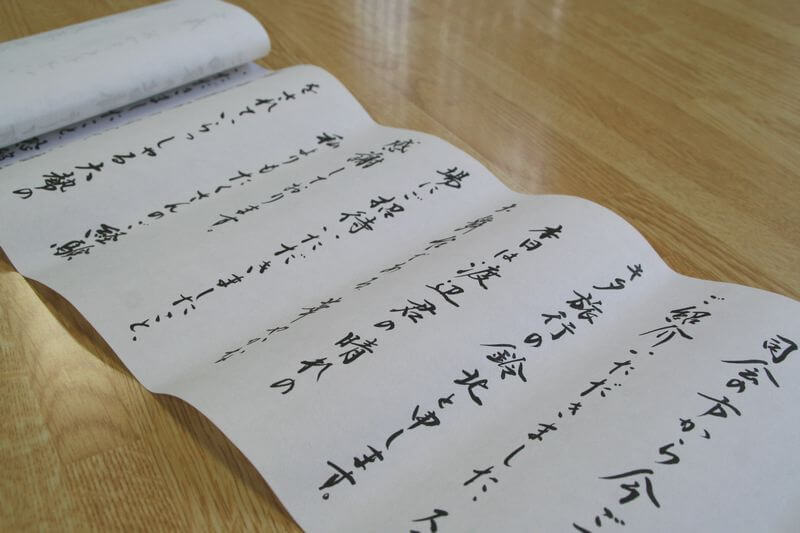 司会の方から今
ご紹介いただきました、ス
キタ旅行の鈴北と申します。
本日は渡辺君の晴れの
場にご招待いただきましたこと、
感謝しております。
私よりもたくさんの経験
をされていらっしゃる大勢の